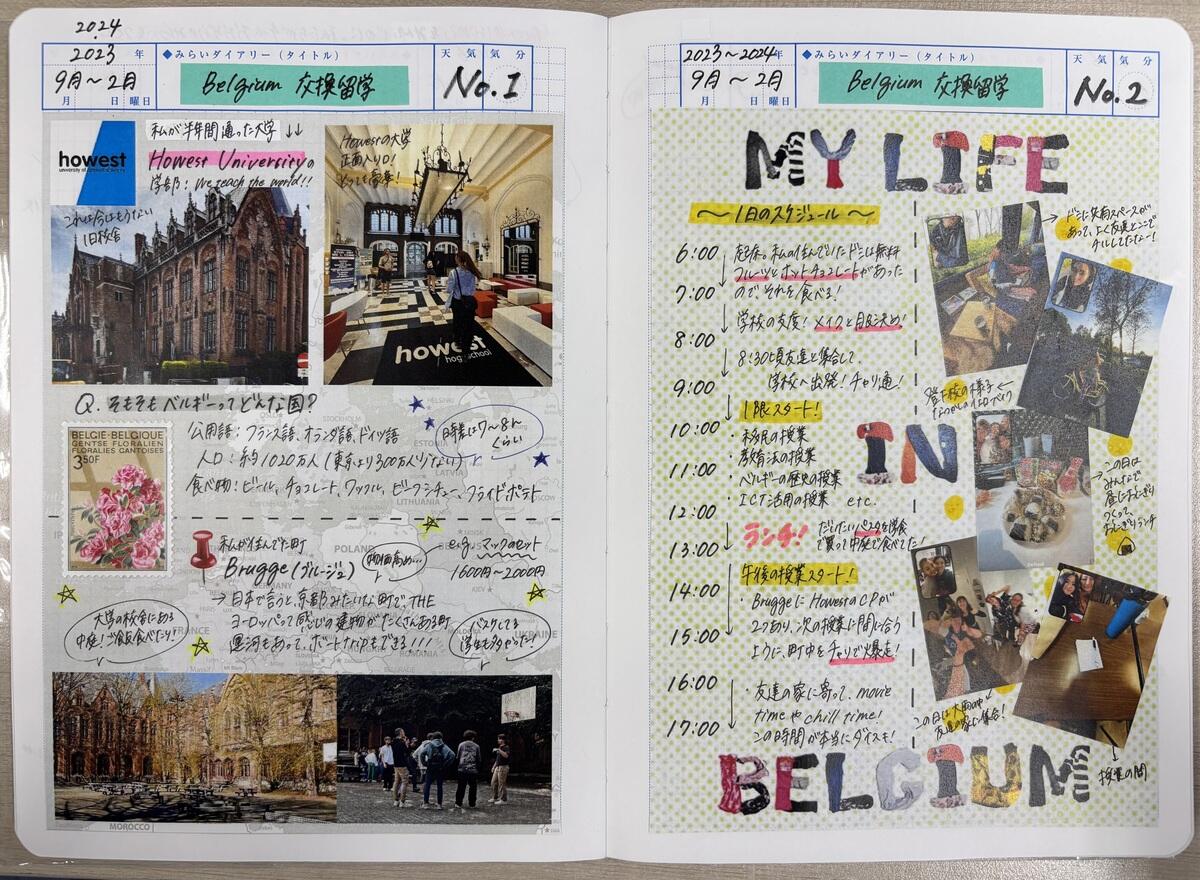 2024
2023 年
9月～2月
月 日 曜日
◆みらいダイアリー（タイトル）
Belgium 交換留学
天 気 気 分
No.1
howest
私が半年間通った大学 ↓↓
Howest Universityの
学部: We teach the world!!
これは今はもうない
旧校舎
Howestの大学
正面入り口!
とっても豪華!
howest
hogeschool
Q. そもそもベルギーってどんな国?
公用語: フランス語、オランダ語、ドイツ語
人口: 約1020万人 (東京より300万人少ない)
食べ物: ビール、チョコレート、ワッフル、ビーフシチュー、フライドポテト
時差は7～8h
くらい
BELGIE·BELGIQUE
GENTSE FLORALIEN
FLORALIES GANTOISES
3,50F
私が住んでた町
Brugge (ブルージュ)
物価高め...
e.g. マックのセット
1600円～2000円
→日本で言うと、京都みたいな町で、THE
ヨーロッパって感じの建物がたくさんある町
運河もあって、ボートナンカもできる!!!!
大学の校舎にある
中庭! ご飯食べたり!
バスケしてる
学生も多かった!
STOCKHOLM
HELSINKI
ESTONIA
LATVIA
LITHUANIA
POLAND
GERMANY
UKRAINE
MOROCCO
2023～2024年
9月～2月
月 日 曜日
◆みらいダイアリー（タイトル）
Belgium 交換留学
天 気 気 分
No.2
MY LIFE
～1日のスケジュール～
6:00 起床。私の住んでいたドミは無料
フルーツとホットチョコレートがあった
7:00 のでそれを食べる!
学校の支度! メイクと服決め!
8:00
8:30頃友達と集合して、
9:00 学校へ出発! チャリ通!
1限スタート!
10:00 ・移民の授業
・教育法の授業
11:00 ・ベルギーの歴史の授業
・ICT活用の授業 etc.
12:00
ランチ! だいたいパスタを学食
13:00 で買って中庭で食べてた!
午後の授業スタート!
14:00 ・BruggeにHowestのCPが
2つあり、次の授業に間に合う
15:00 ように、町中をチャリで爆走!
16:00 ・友達の家に寄って、movie
timeやchill time!
17:00 この時間が本当にダイスキ!
→ドミに共有スペースが
あって、よく友達とここで
チルしてたなー!
登下校の様子←
IN
→この日は
みんなで
昼におにぎり
つくって、
おにぎりランチ
この日は大勢で
友達の家に集合!
授業の間
BELGIUM